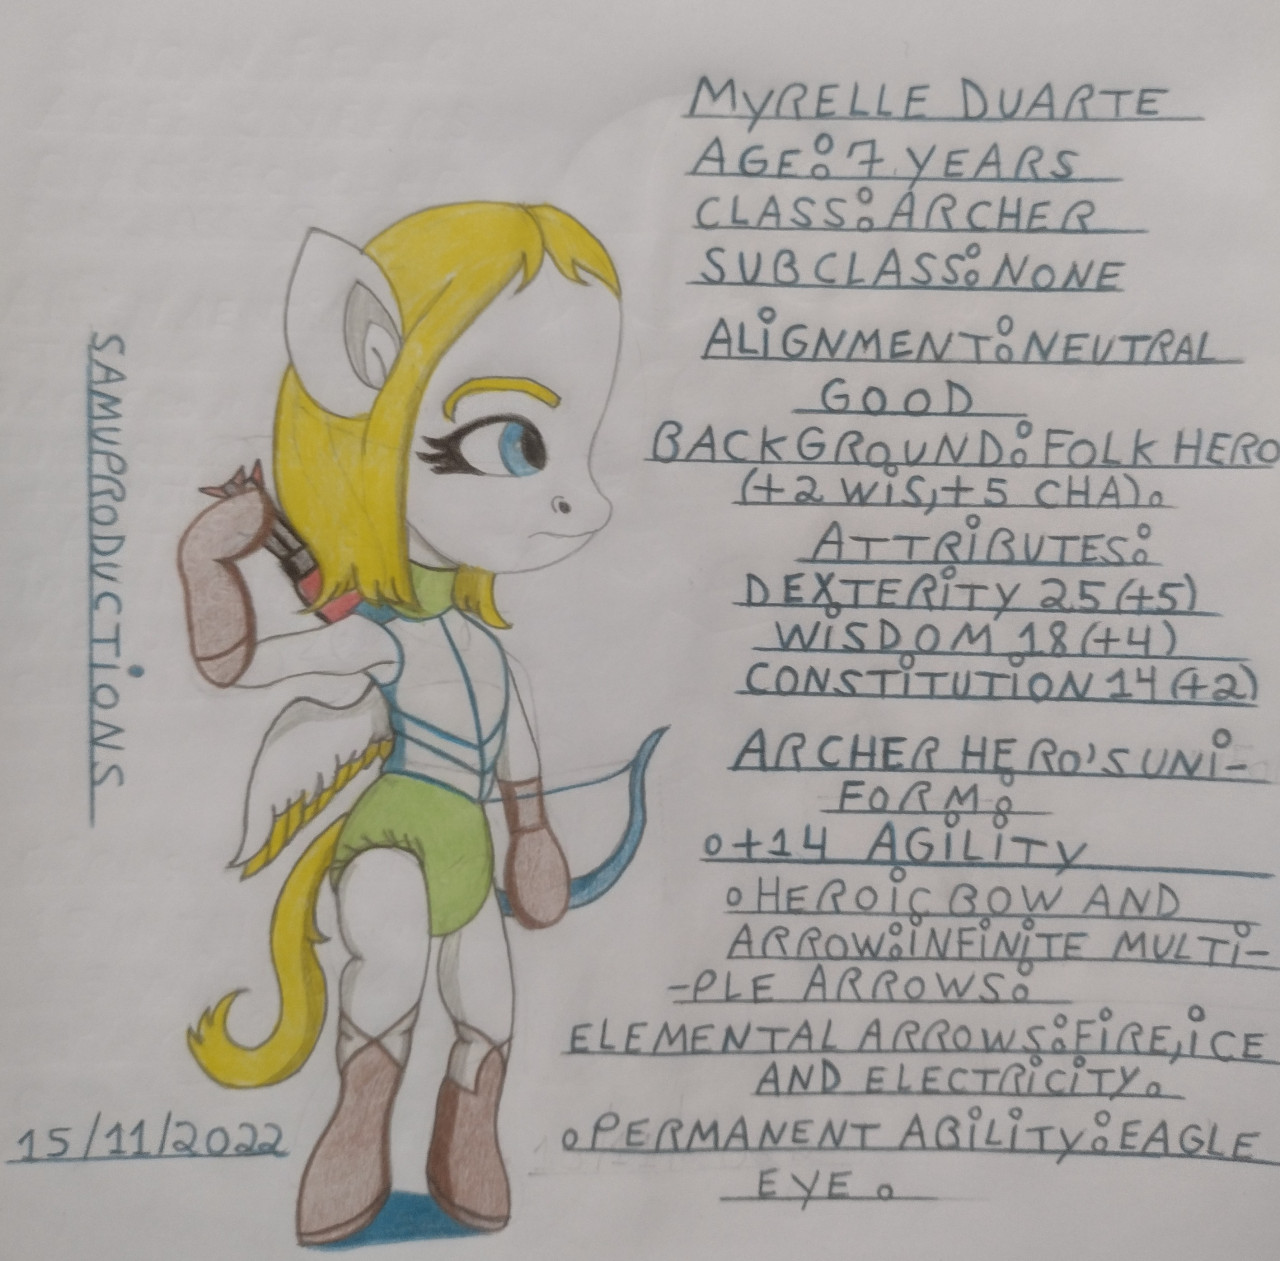 MYRELLE DUARTE
AGE: 7 YEARS
CLASS: ARCHER
SUBCLASS: NONE
ALiGNMENT: NEUTRAL
GOOD
BACKGROUND: FOLK HERO
(+2 WiS, +5 CHA).
ATTRiBUTES:
DEXTERiTY 25 (+5)
WiSDOM 18 (+4)
CONSTiTUTiON 14 (+2)
ARCHER HERO'S UNi-
FORM:
o+14 AGiLiTY
oHEROiC BOW AND
ARROW: iNFiNiTE MULTi-
-PLE ARROWS:
ELEMENTAL ARROWS: FiRE, iCE
AND ELECTRiCiTY.
oPERMANENT ABiLiTY: EAGLE
EYE.
SAMUPRODUCTiONS
15/11/2022